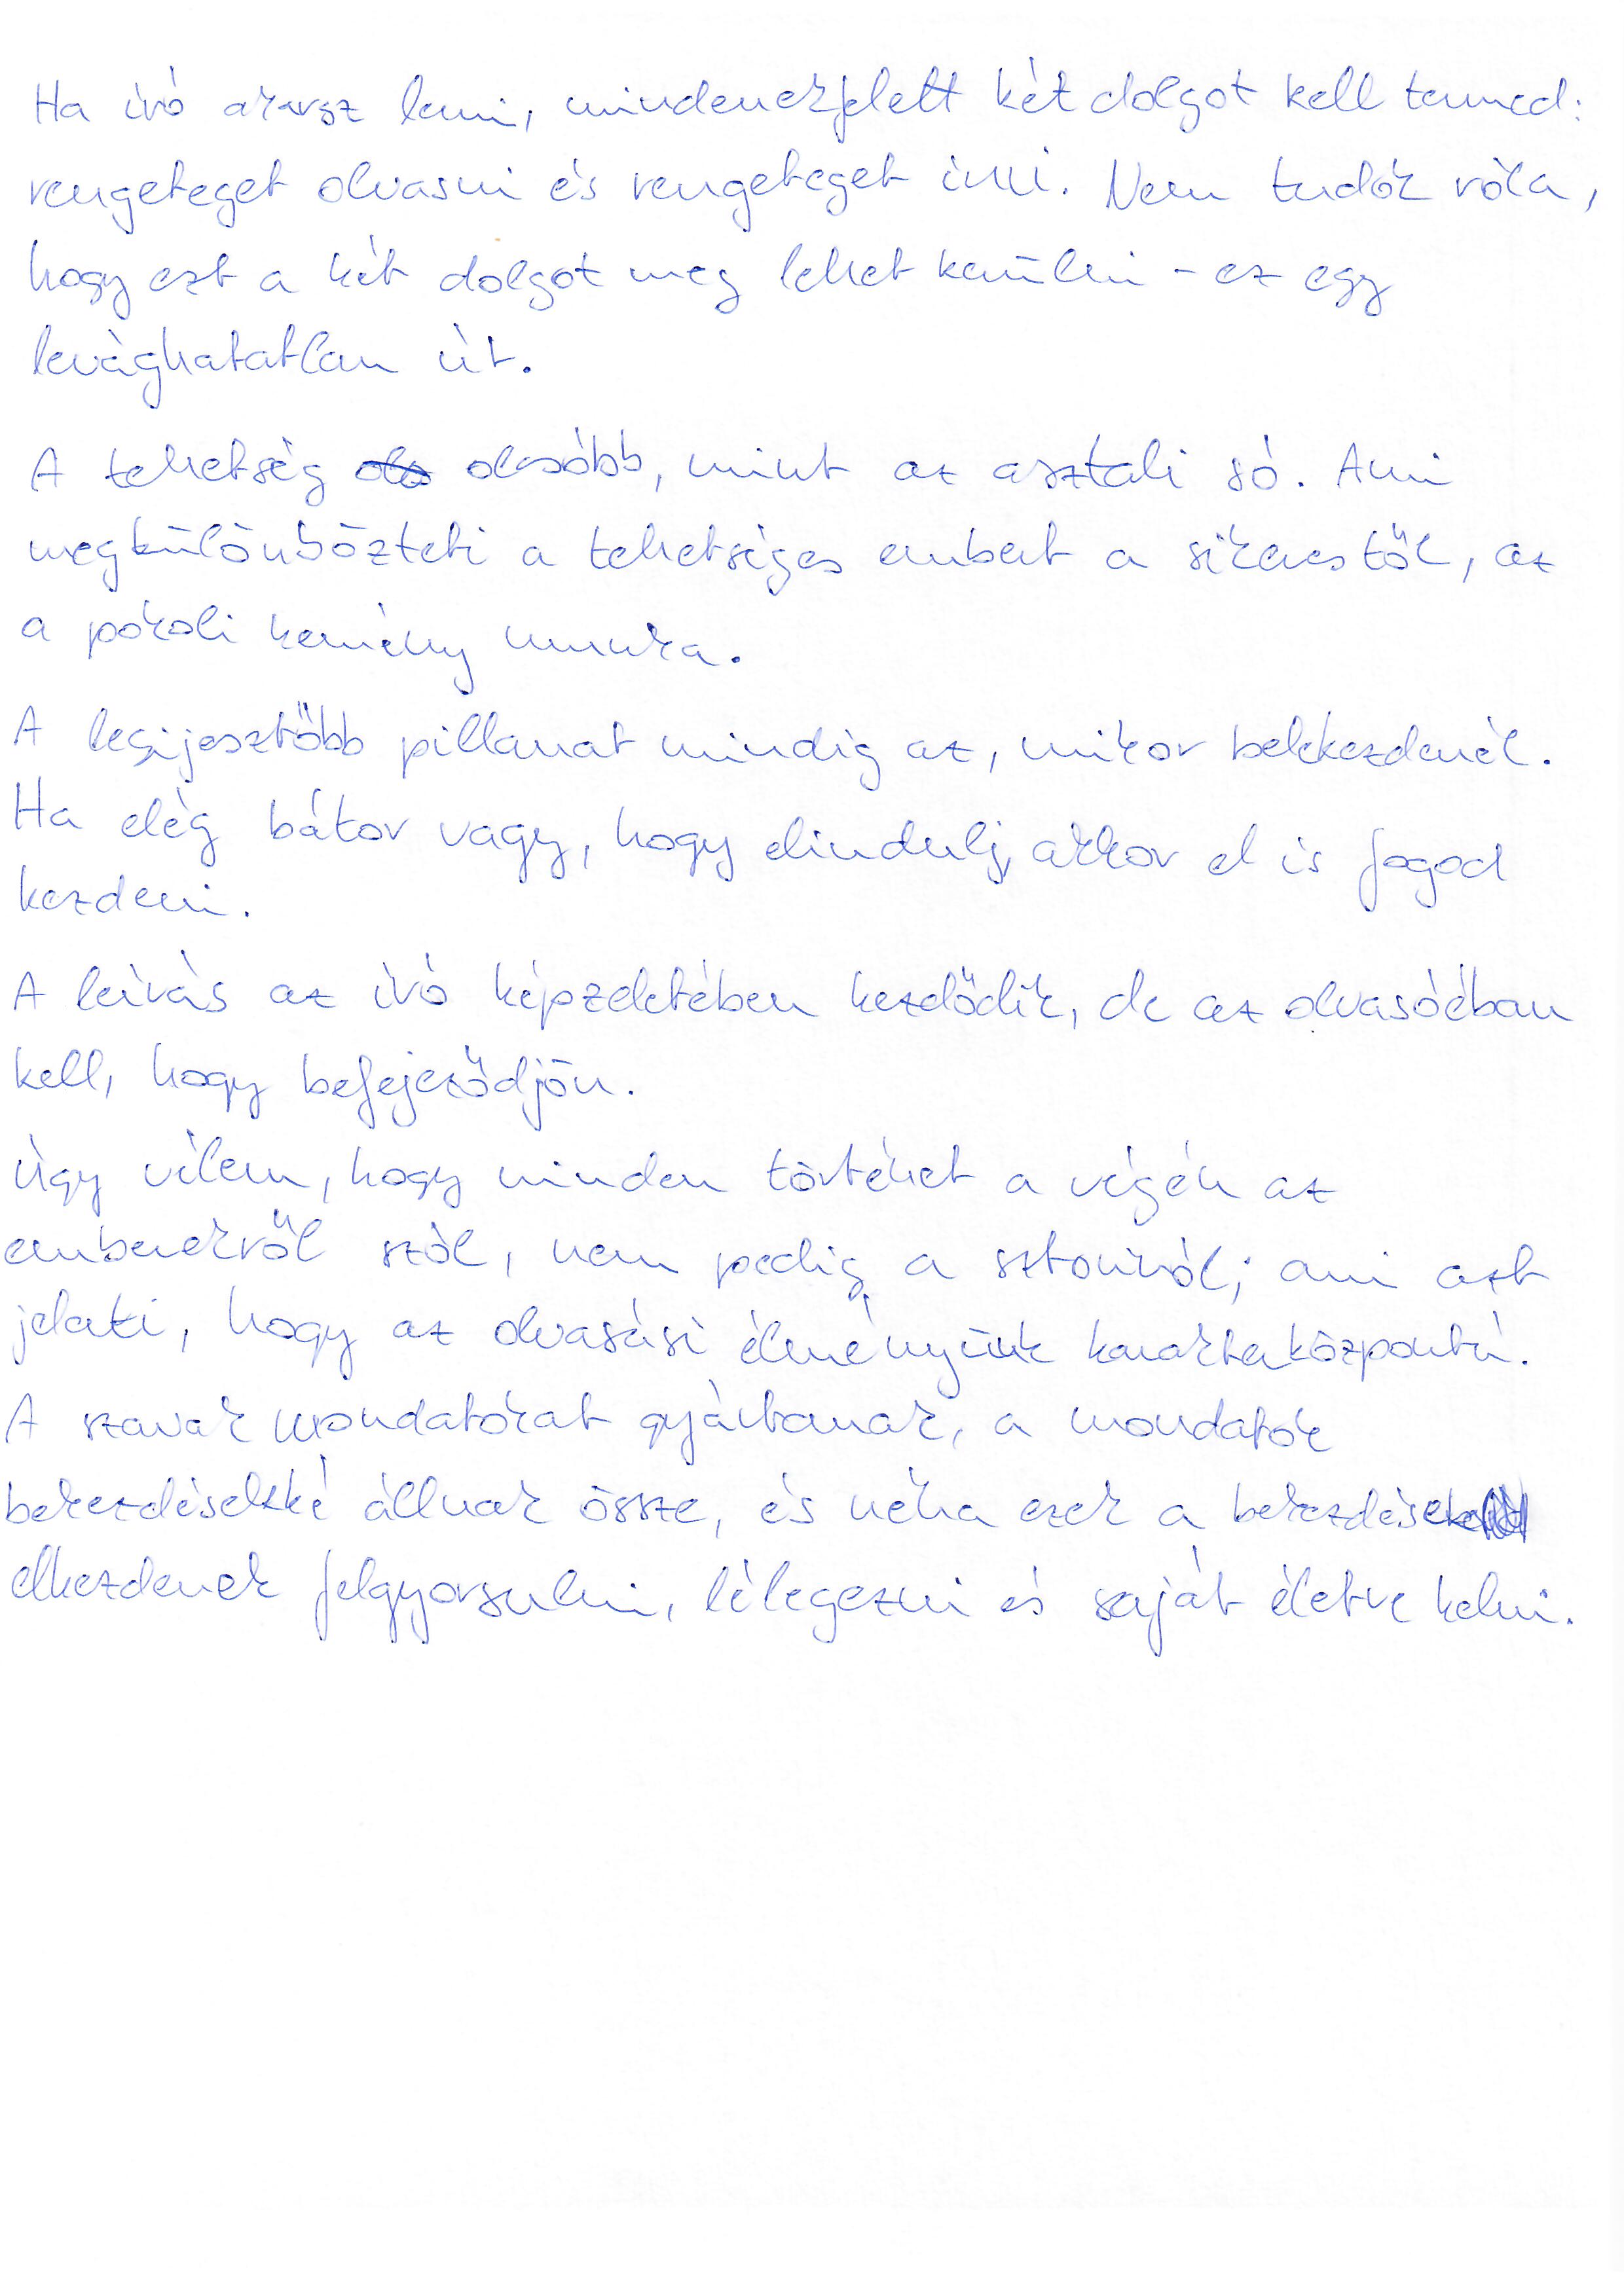 Ha író akarsz lenni, mindenekfelett két dolgot kell tenned:
rengeteget olvasni és rengeteget írni. Nem tudok róla,
hogy ezt a két dolgot meg lehet kerülni - ez egy
levághatatlan út.
A tehetség olcsóbb, mint az asztali só. Ami
megkülönbözteti a tehetséges embert a sikerestől, az
a pokoli kemény munka.
A legijesztőbb pillanat mindig az, mikor belekezdenél.
Ha elég bátor vagy, hogy elindulj, akkor el is fogod
kezdeni.
A leírás az író képzeletében kezdődik, de az olvasóéban
kell, hogy befejeződjön.
Úgy vélem, hogy minden történet a végén az
emberekről szól, nem pedig a sztoriról; ami azt
jelenti, hogy az olvasási élményünk karakterközpontú.
A szavak mondatokat gyártanak, a mondatok
bekezdésekké állnak össze, és néha ezek a bekezdések
elkezdenek felgyorsulni, lélegezni és saját életre kelni.